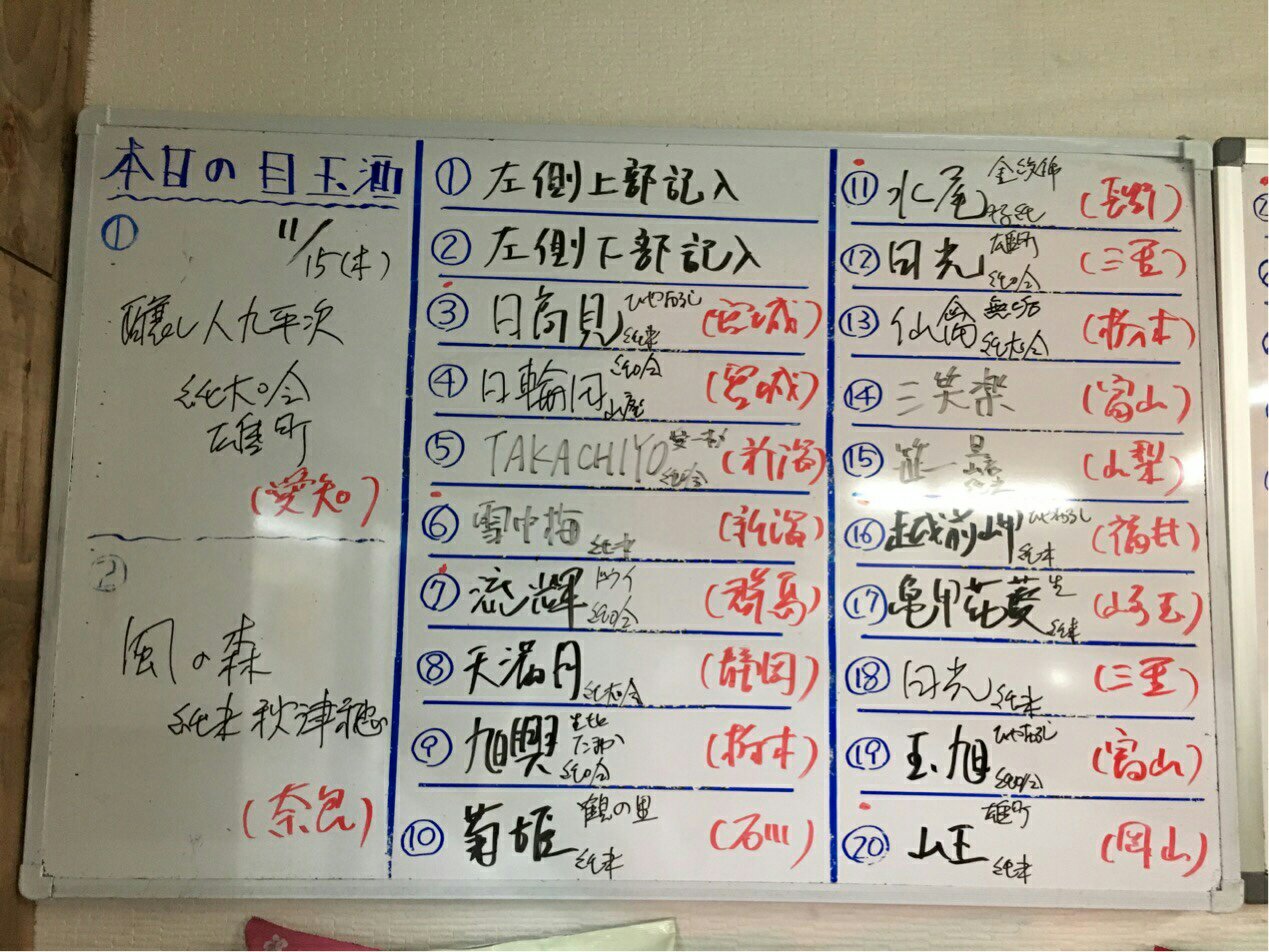 本日の目玉酒
①
11/15(木)
醸し人九平次
純大吟
雄町
(愛知)
②
風の森
純米 秋津穂
(奈良)
① 左側上部記入
② 左側下部記入
③ 日高見 ひやおろし 純米 (宮城)
④ 日輪田 純吟 山廃 (宮城)
⑤ TAKACHIYO 純吟 (新潟)
⑥ 雪中梅 純米 (新潟)
⑦ 流輝 純吟 (群馬)
⑧ 天満月 純大吟 (静岡)
⑨ 旭興 生酛 たまか 純吟 (栃木)
⑩ 菊姫 鶴の里 純米 (石川)
⑪ 水尾 金紋錦 特純 (長野)
⑫ 田光 雄町 純吟 (三重)
⑬ 仙禽 無垢 純大吟 (栃木)
⑭ 三笑楽 (富山)
⑮ 笹一 (山梨)
⑯ 越前岬 ひやおろし 純米 (福井)
⑰ 亀甲花菱 生 純米 (埼玉)
⑱ 田光 純米 (三重)
⑲ 玉旭 ひやおろし 純吟 (富山)
⑳ 山王 雄町 純米 (岡山)